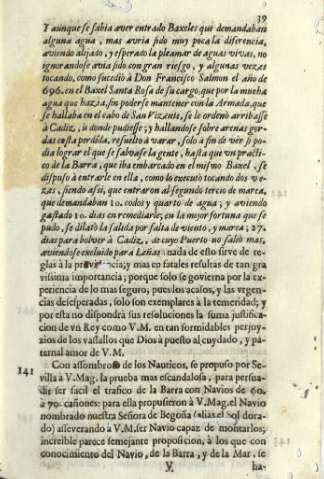 39
Y aunque se sabia aver entrado Baxeles que demandaban
alguna agua, mas avria sido muy poca la diferencia,
aviendo alijado, y esperado la pleamar de aguas vivas, no
ignorandose avia sido con gran riesgo, y algunas vezes
tocando, como sucediò à Don Francisco Salmon el año de
696. en el Baxel Santa Rosa de su cargo, que por la mucha
agua que hazia, sin poderse mantener con la Armada, que
se hallaba en el cabo de San Vizente, se le ordenò arribasse
à Cadiz, ò donde pudiesse; y hallandose sobre arenas gor-
das casi perdido, resuelto à varar, solo a fin de vèr si po-
dia lograr el que se salvasse la gente, hasta que vn practi-
co de la Barra, que iba embarcado en el mismo Baxel, se
dispuso à entrarle en ella, como lo executò tocando dos ve-
zes, siendo assi, que entraron al segundo tercio de marea,
que demandaban 10. codos y quarto de agua; y aviendo
gastado 10. dias en remediarle, en la mejor fortuna que se
pudo, se dilatò la salida por falta de viento, y marea; 27.
dias para bolver à Cadiz, de cuyo Puerto no saliò mas,
aviendose excluido para Leñas nada de esto sirve de re-
glas à la providencia; y mas en fatales resultas de tan gra
vissima importancia; porque solo se govierna por la ex-
periencia de lo mas seguro, pues los acasos, y las vrgen-
cias desesperadas, solo son exemplares à la temeridad; y
por esta no dispondrà sus resoluciones la suma justifica-
cion de vn Rey como V.M. en tan formidables perjuy-
zios de los vassallos que Dios à puesto al cuydado, y pa-
ternal amor de V.M.
141 Con assombro de los Nauticos, se propuso por Se-
villa à V.Mag. la prueba mas escandalosa, para persua-
dir ser facil el trafico de la Barra con Navios de 60.
à 70. cañones: para ella propusieron à V.Mag. el Navio
nombrado nuestra Señora de Begoña (alias el Sol dora-
do) asseverando à V.M. ser Navio capaz de montarlos;
increible parece semejante proposicion, à los que con
conocimiento del Navio, de la Barra, y de la Mar, se
V. ha-